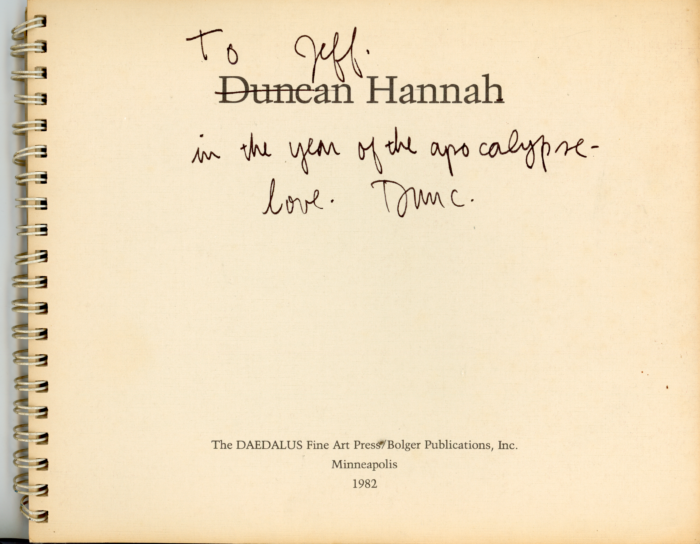 To Jeff.
Duncan Hannah
in the year of the apocalypse-
love. Dunc.
The DAEDALUS Fine Art Press/Bolger Publications, Inc.
Minneapolis
1982